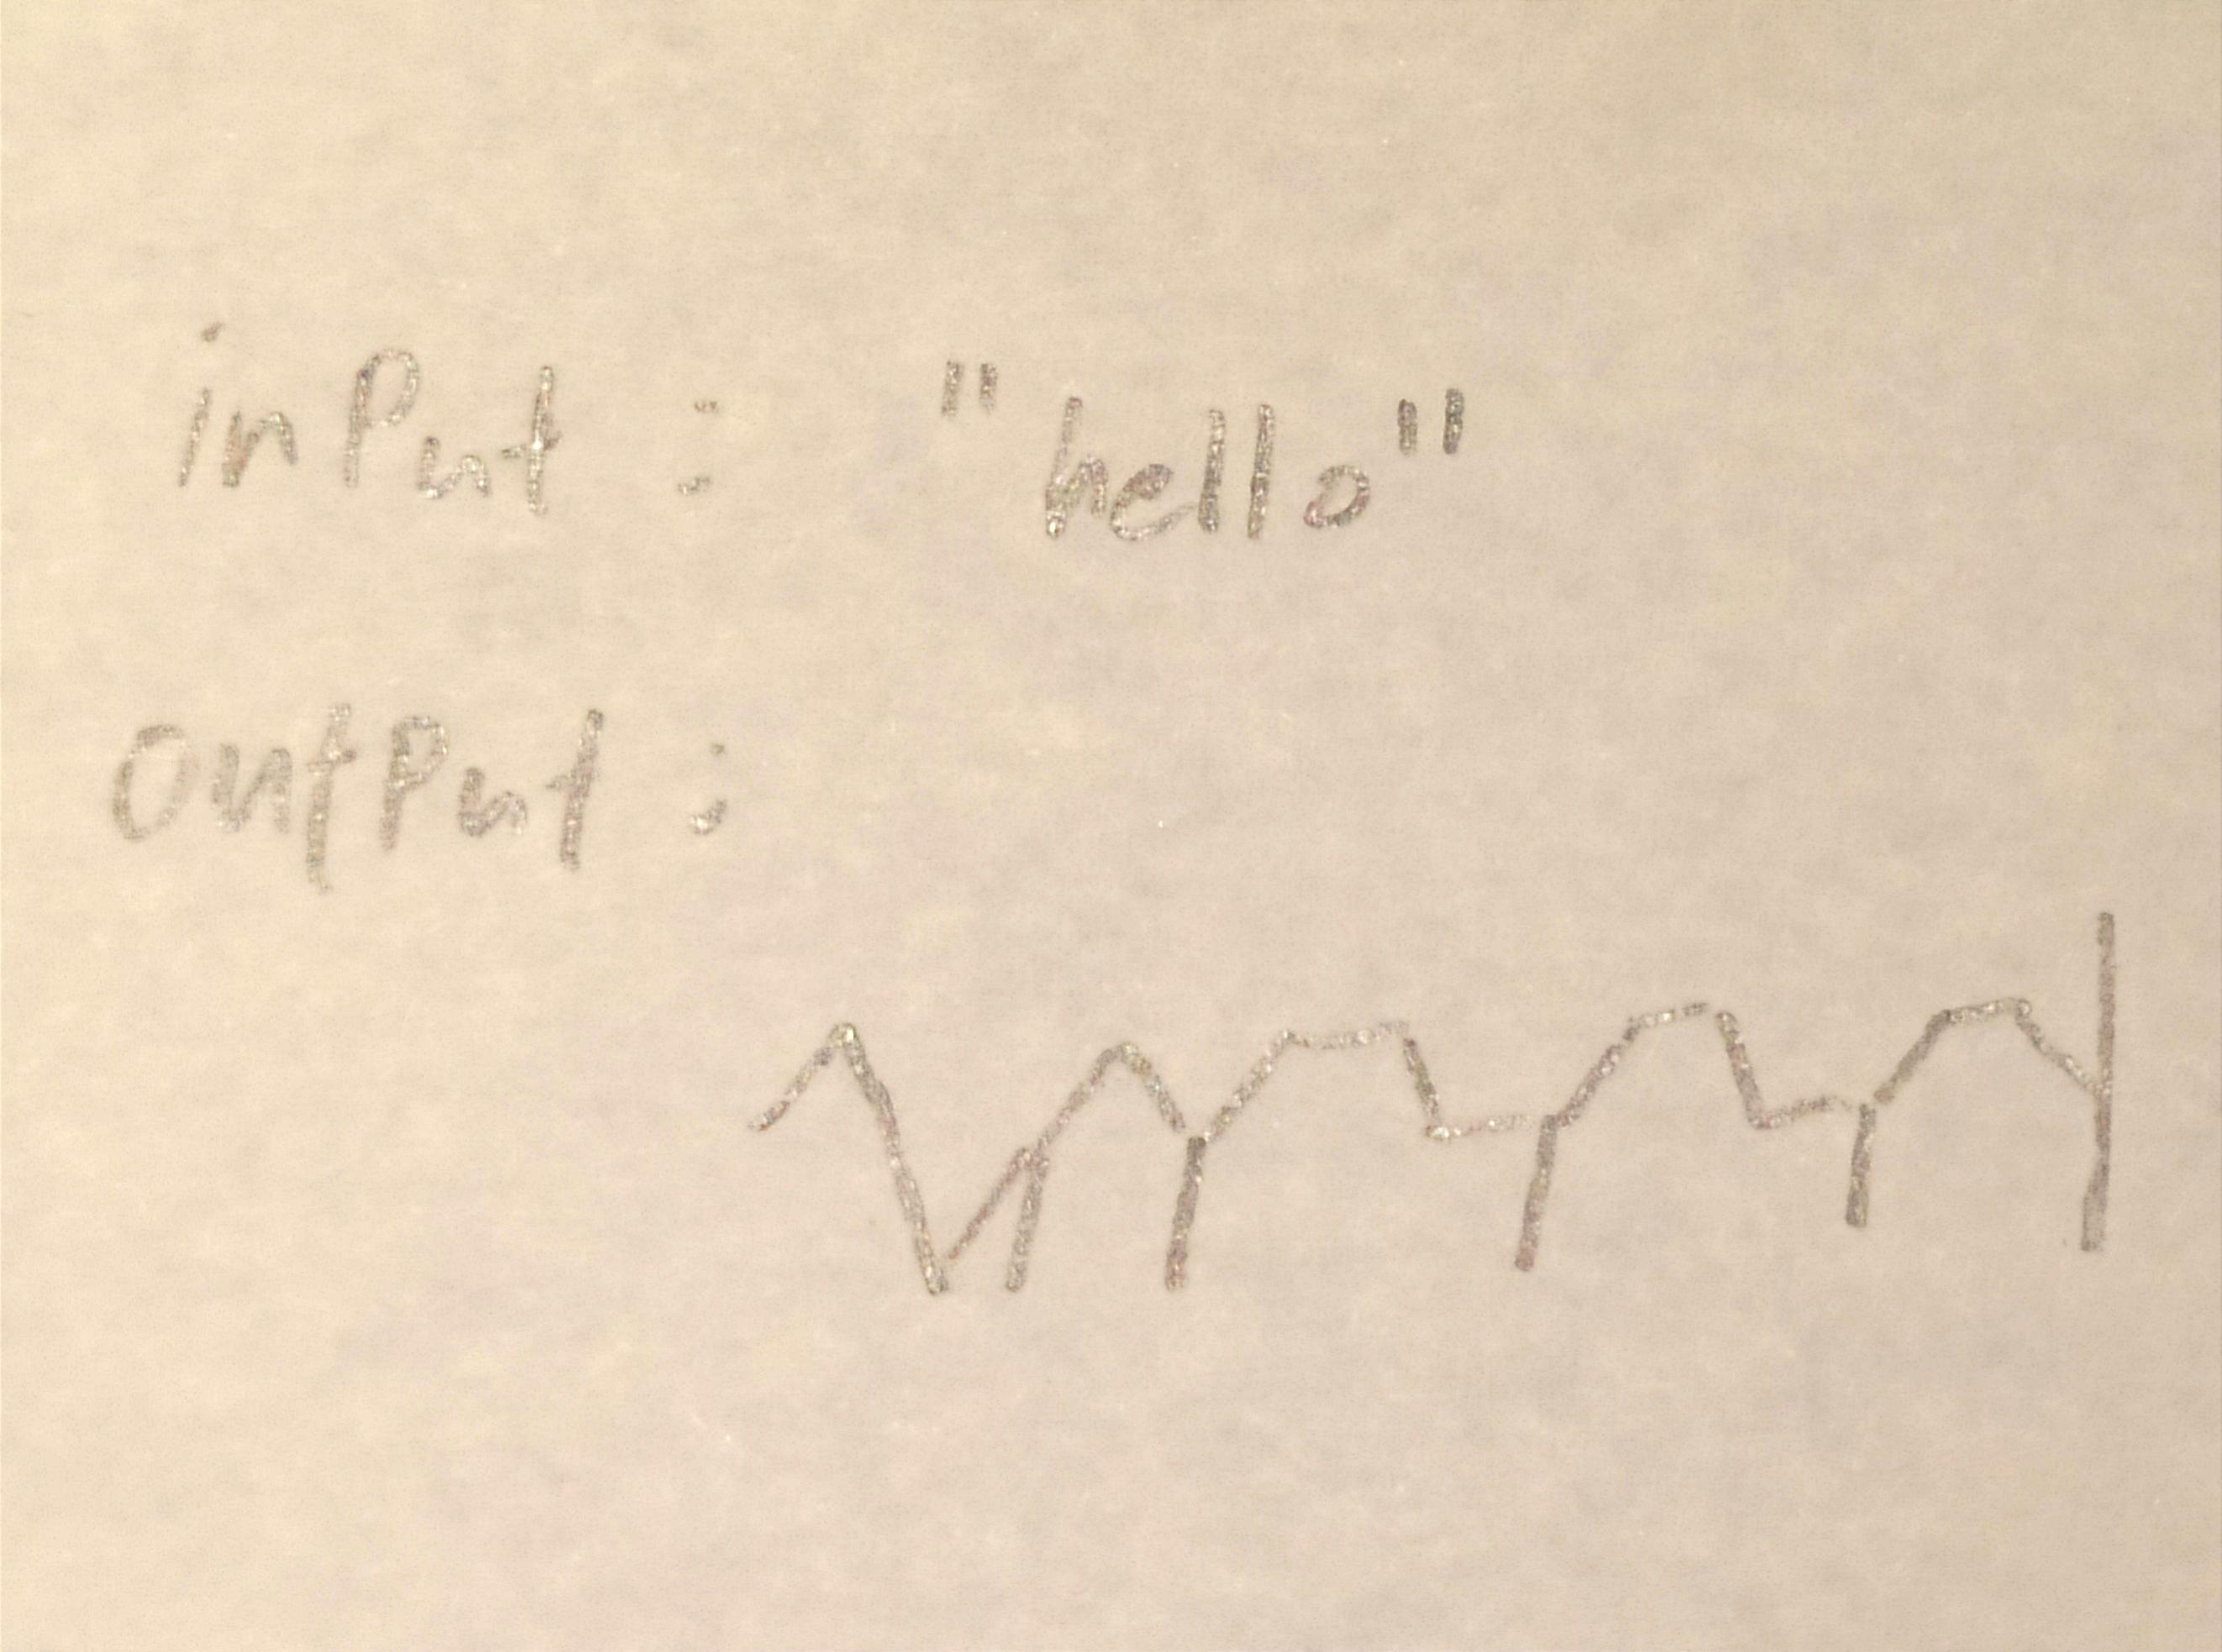 inPut : "hello"
outPut :